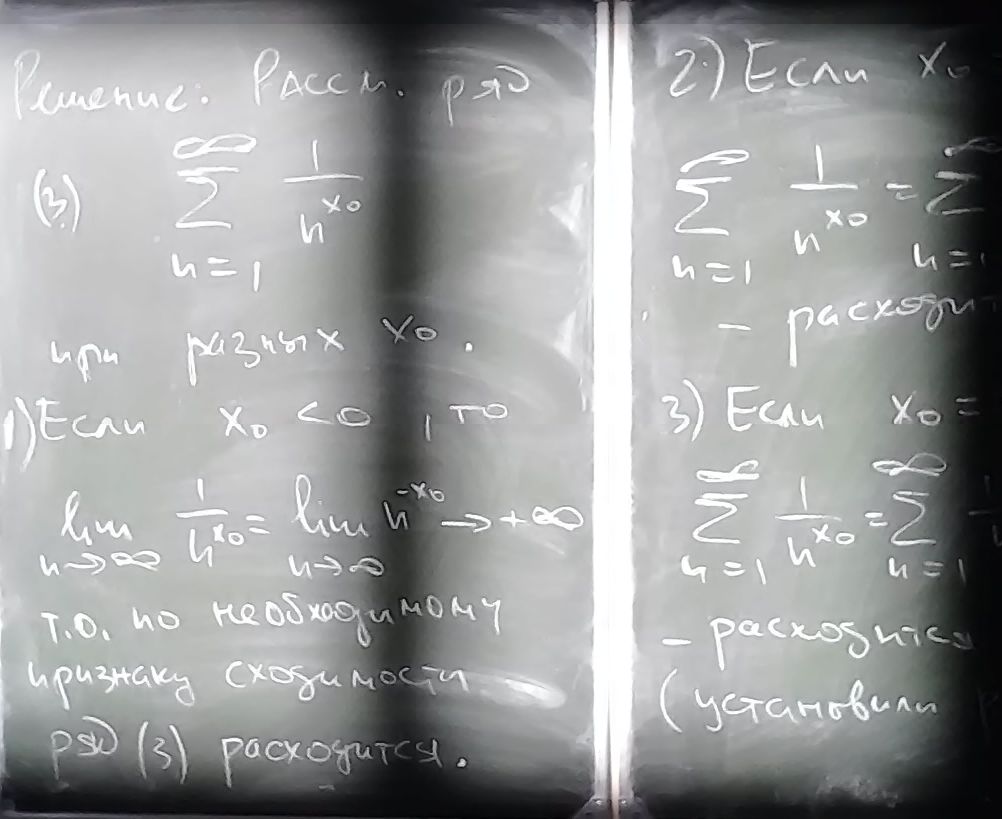 Решение: Рассм. ряд
(3) ∞ ∑ n=1 1/n^x₀
при разных x₀.
1) Если x₀ < 0, то
lim n→∞ 1/n^x₀ = lim n→∞ n^-x₀ → +∞
т.о. по необходимому
признаку сходимости
ряд (3) расходится.
2) Если x₀
∞ ∑ n=1 1/n^x₀ = ∞ ∑ n=1
– расходит
3) Если x₀ =
∞ ∑ n=1 1/n^x₀ = ∞ ∑ n=1 1
– расходится
(установили